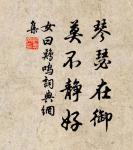 琴瑟在御
莫不静好
女曰鷄鳴詞典網
集